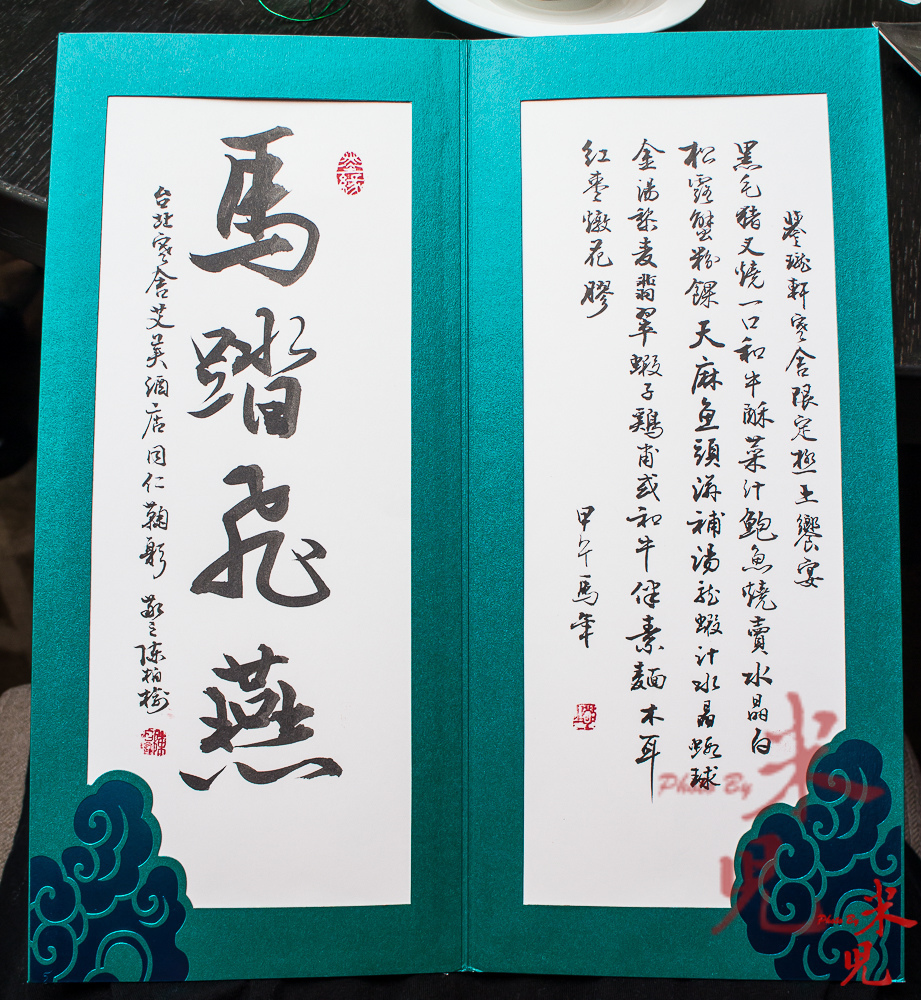 瓏軒寒舍限定極上饗宴
黑毛豬叉燒一口和牛酥菜汁鮑魚燒賣水晶白
松露蟹粉餜天麻魚頭滋補湯龍蝦汁水晶蝦球
金湯藜麦翡翠蝦子鷄甫或和牛伴素麵木耳
紅棗燉花膠
甲午馬年
馬踏飛燕
台北寒舍艾美酒店同仁鞠躬 敬之陳柏
Photo By 米兒
Photo By 米兒